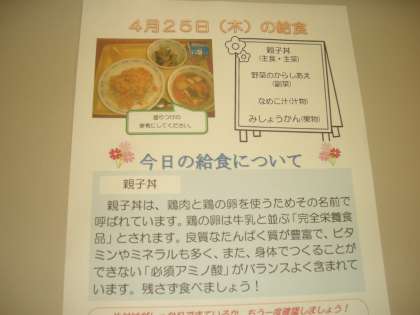 4月25日（木）の給食
親子丼
（主食・主菜）
野菜のからしあえ
（副菜）
なめこ汁（汁物）
みしょうかん（果物）
盛りつけの
参考にしてください。
今日の給食について
親子丼
親子丼は、鶏肉と鶏の卵を使うためその名前で
呼ばれています。鶏の卵は牛乳と並ぶ「完全栄養食
品」とされます。良質なたんぱく質が豊富で、ビタ
ミンやミネラルも多く、また、身体でつくることが
できない「必須アミノ酸」がバランスよく含まれて
います。残さず食べましょう！
もう一度確認しましょう！